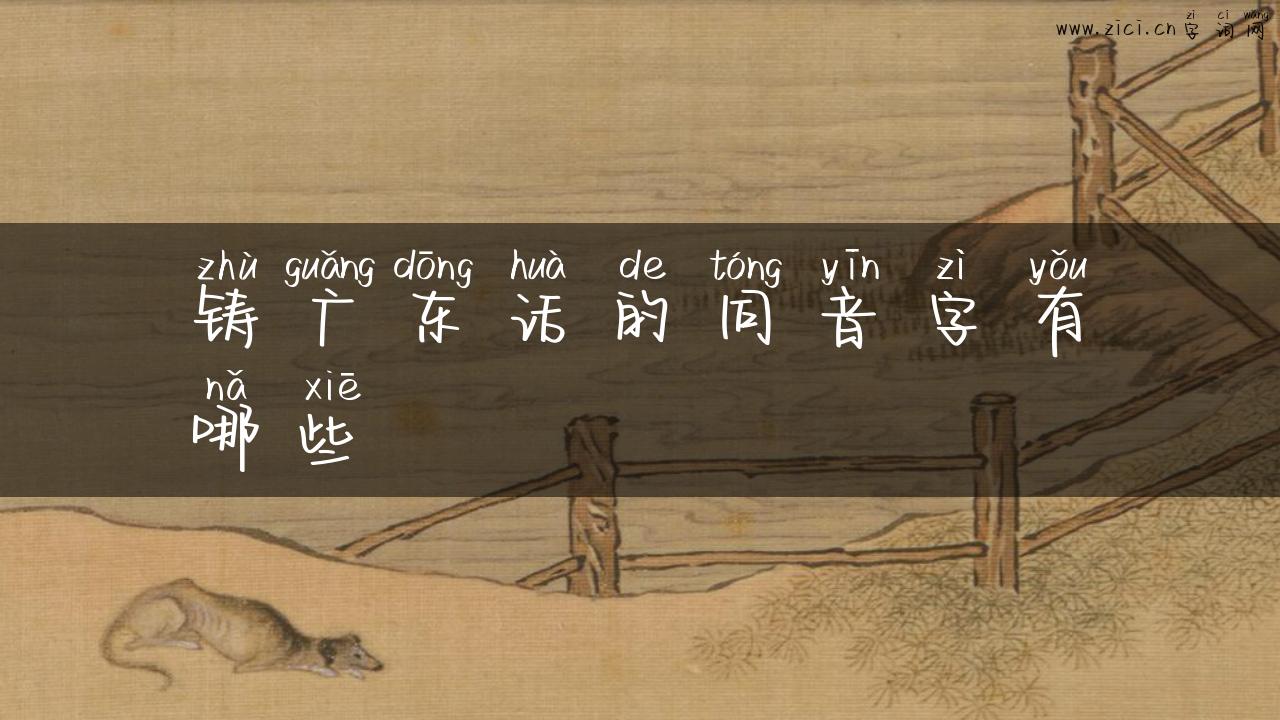 zì cí wǎng
www.zici.cn 字词网
zhù guǎng dōng huà de tóng yīn zì yǒu
铸广东话的同音字有
nǎ xiē
哪些